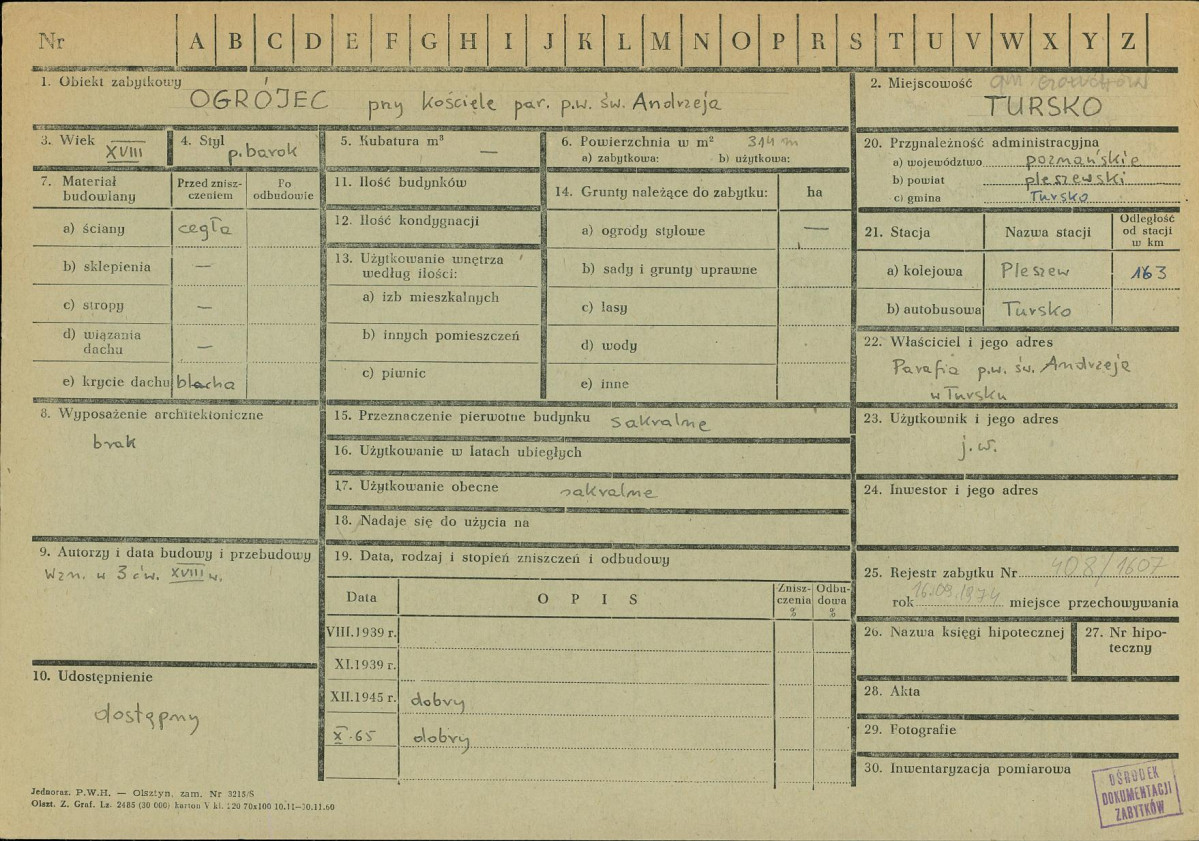 Nr A B C D E F G H I J K L M N O P R S T U V W X Y Z
1. Obiekt zabytkowy
OGRÓJEC przy kościele par. p.w. św. Andrzeja
2. Miejscowość gm. Gołuchów
TURSKO
3. Wiek
XVIII
4. Styl
p. barok
5. Kubatura m³
—
6. Powierzchnia w m² 314 m
a) zabytkowa: b) użytkowa:
7. Materiał budowlany
Przed zniszczeniem
Po odbudowie
a) ściany cegła
b) sklepienia —
c) stropy —
d) wiązania dachu —
e) krycie dachu blacha
8. Wyposażenie architektoniczne
brak
9. Autorzy i data budowy i przebudowy
Wzn. w 3 ćw. XVIII w.
10. Udostępnienie
dostępny
11. Ilość budynków
12. Ilość kondygnacji
13. Użytkowanie wnętrza
według ilości:
a) izb mieszkalnych
b) innych pomieszczeń
c) piwnic
14. Grunty należące do zabytku: ha
a) ogrody stylowe —
b) sady i grunty uprawne
c) lasy
d) wody
e) inne
15. Przeznaczenie pierwotne budynku sakralne
16. Użytkowanie w latach ubiegłych
17. Użytkowanie obecne sakralne
18. Nadaje się do użycia na
19. Data, rodzaj i stopień zniszczeń i odbudowy
Data OPIS Zniszczenia % Odbudowa %
VIII.1939 r.
XI.1939 r.
XII.1945 r. dobry
X.65 dobry
20. Przynależność administracyjna
a) województwo poznańskie
b) powiat pleszewski
c) gmina Tursko
21. Stacja Nazwa stacji Odległość od stacji w km
a) kolejowa Pleszew 163
b) autobusowa Tursko
22. Właściciel i jego adres
Parafia p.w. św. Andrzeja
w Tursku
23. Użytkownik i jego adres
j.w.
24. Inwestor i jego adres
25. Rejestr zabytku Nr 408/1607
rok 16.09.1974 miejsce przechowywania
26. Nazwa księgi hipotecznej
27. Nr hipoteczny
28. Akta
29. Fotografie
30. Inwentaryzacja pomiarowa
OŚRODEK
DOKUMENTACJI
ZABYTKÓW
Jednoraz. P.W.H. — Olsztyn, zam. Nr 3215/S
Olszt. Z. Graf. Lz. 2485 (30 000) karton V kl. 220 70x100 10.11—30.11.60